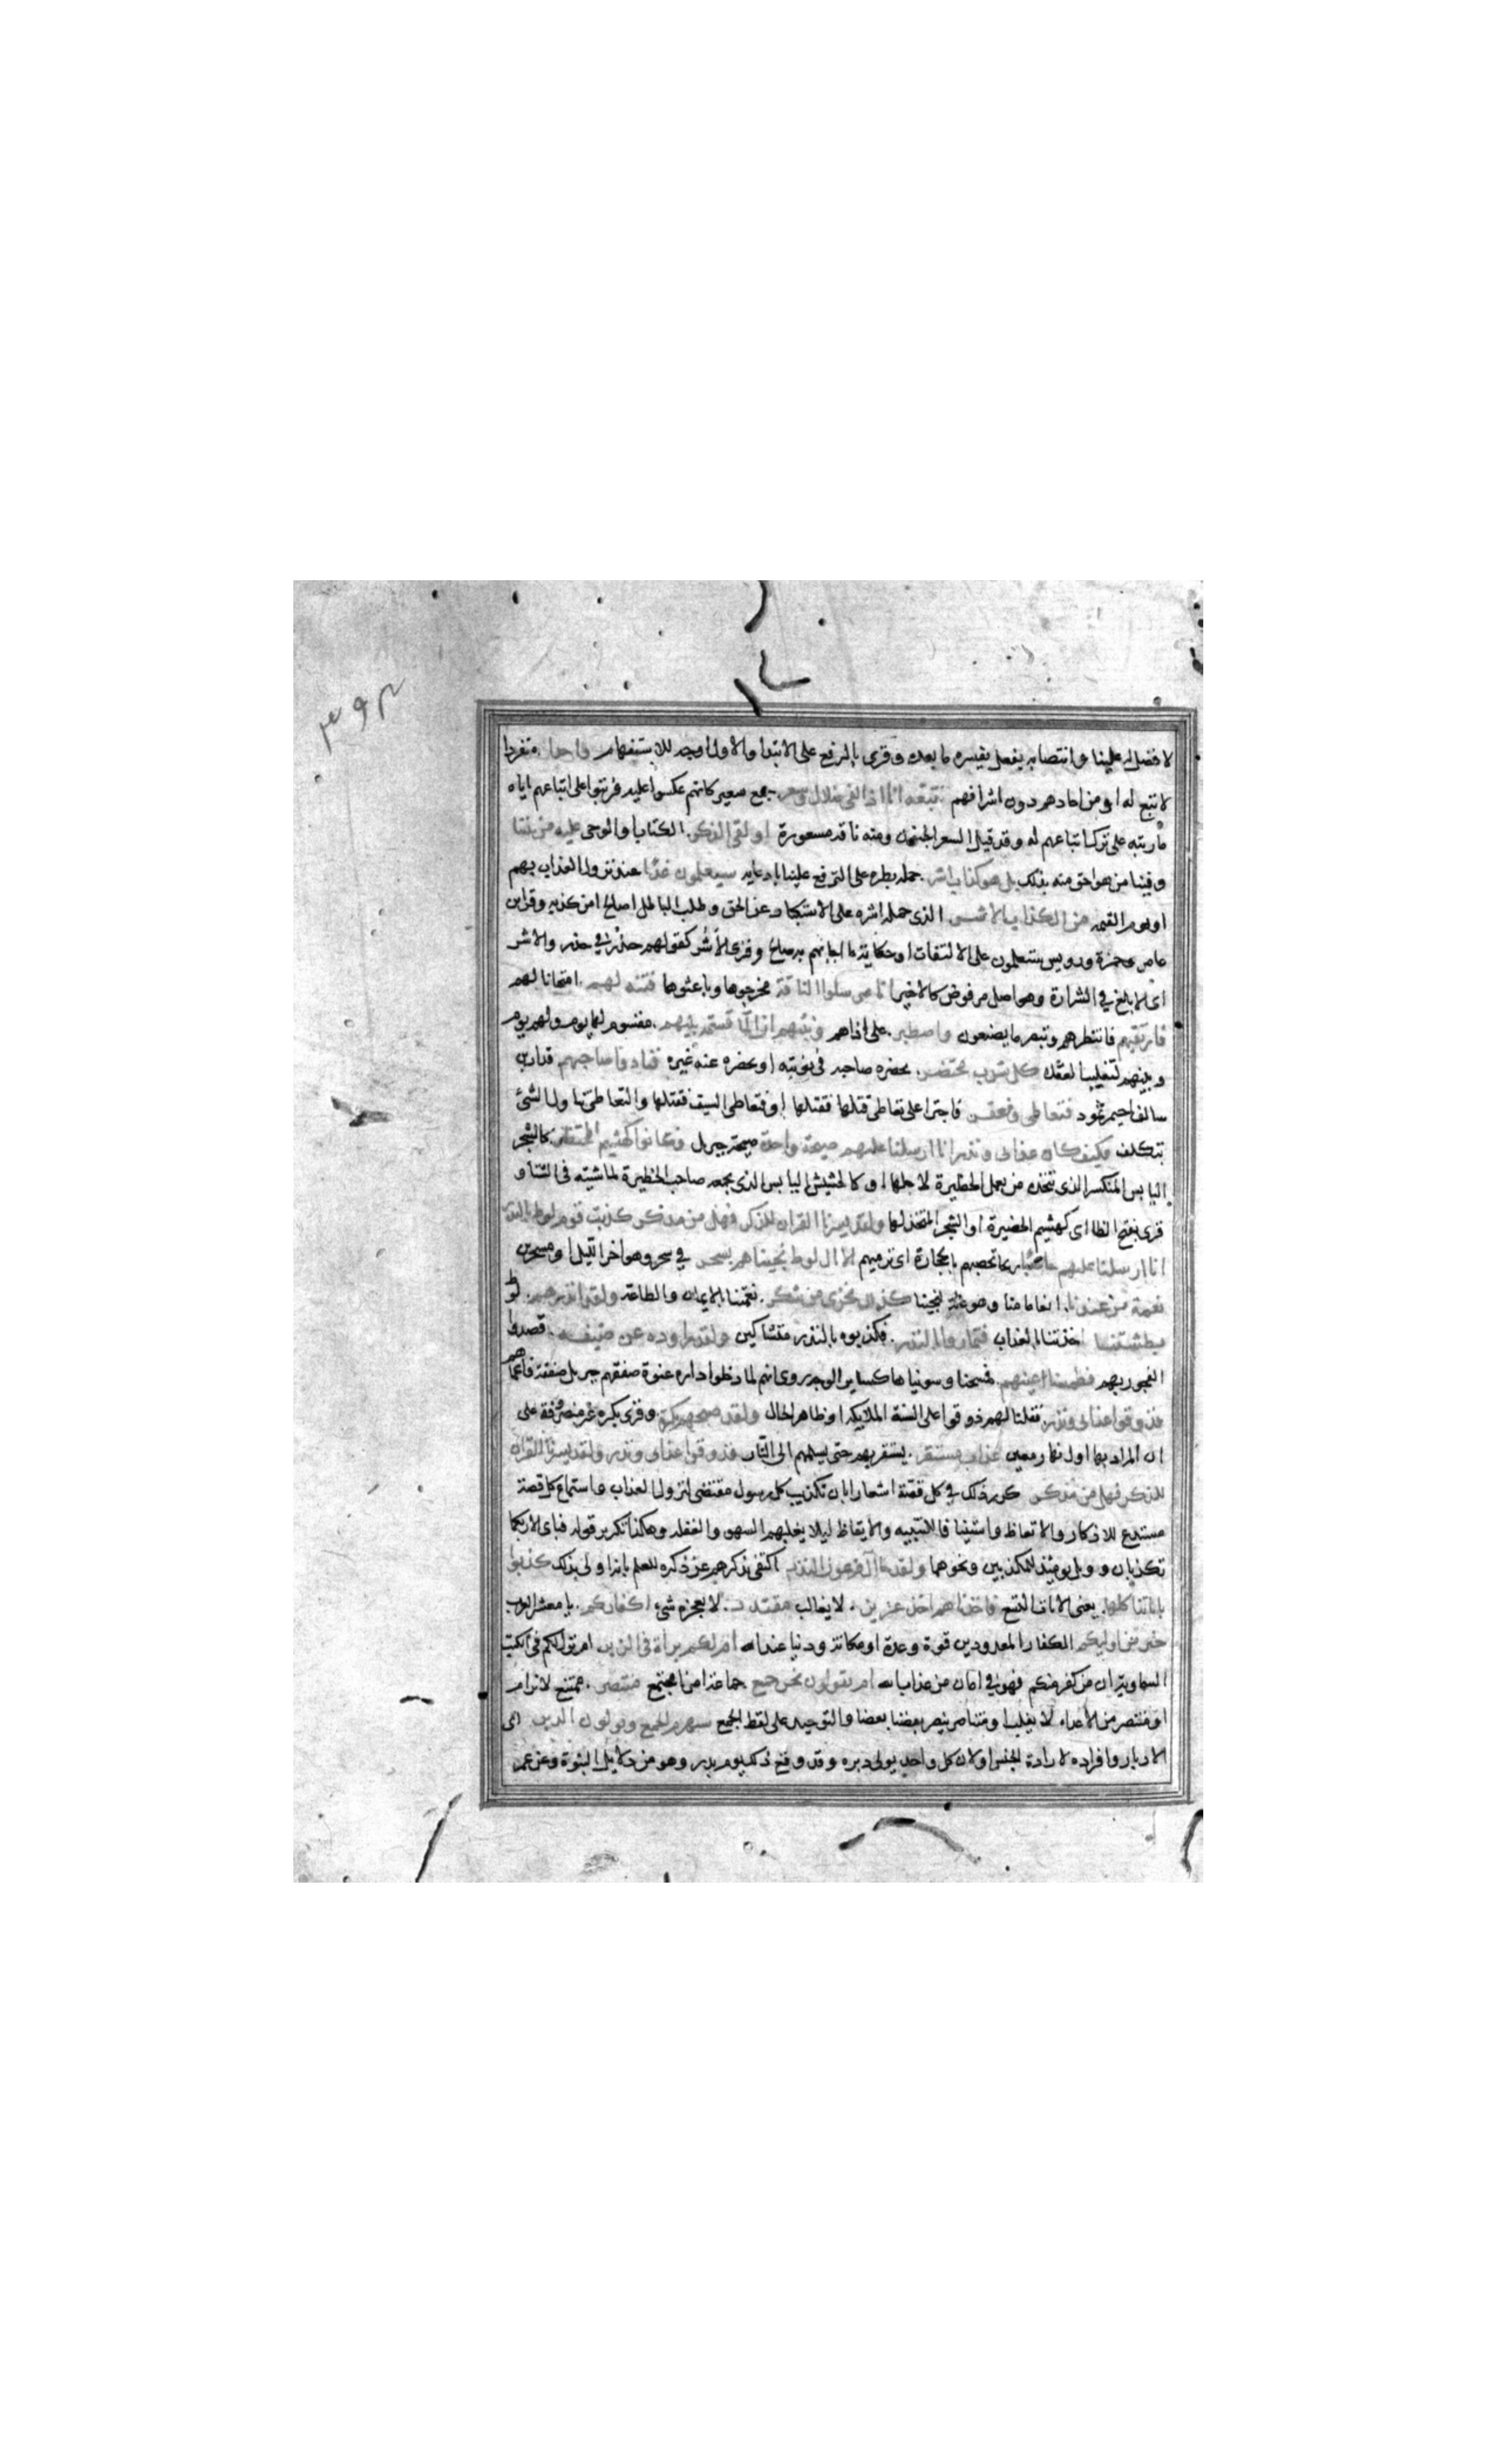 ٣٩٣
لا فضل له علينا وانتصابه بفعل يفسره ما بعده وقرى بالرفع على الابتدا والاول اوجه للاستفهام واحدا منفردا
لا تتبع له او من احادهم دون اشرافهم نتبعه انا اذا لفى ضلال وسعر جمع سعير كانهم عكسوا عليه فرتبوا على اتباعهم اياه
ما رتبه على ترك اتباعهم له وقد قيل السعر الجنون ومنه ناقة مسعورة االقى الذكر الكتاب والوحى عليه من بيننا
وفينا من هو احق منه بذلك بل هو كذاب اشر حمله بطره على الترفع علينا بادعايه سيعلمون غدا عند نزول العذاب بهم
او يوم القيمة من الكذاب الاشر الذى حمله اشره على الاستكبار عن الحق وطلب الباطل اصالح ام من كذبه وقرا ابن
عامر وحمزة ورويس ستعلمون على الالتفات او حكاية ما اجابهم به صالح وقرى الاشر كقولهم حذر في حذر والاشر
اى الابلغ في الشرارة وهو اصل مرفوض كالاخير انا مرسلوا الناقة مخرجوها وباعثوها فتنة لهم امتحانا لهم
فارتقبهم فانتظرهم وتبصر ما يصنعون واصطبر على اذاهم ونبئهم ان الما قسمة بينهم مقسوم لها يوم ولهم يوم
وبينهم لتغليب العقلا كل شرب محتضر يحضره صاحبه في نوبته او يحضره عنه غيره فنادوا صاحبهم قدار بن
سالف احيمر ثمود فتعاطى فعقر فاجترا على تعاطى قتلها فقتلها او فتعاطى السيف فقتلها والتعاطى تناول الشئ
بتكلف فكيف كان عذابى ونذر انا ارسلنا عليهم صيحة واحدة صيحة جبريل فكانوا كهشيم المحتظر كالشجر
اليابس المتكسر الذى يتخذه من يعمل الحظيرة لاجلها او كالحشيش اليابس الذى يجمعه صاحب الحظيرة لماشيته فى الشتا و
قرى بفتح الظا اى كهشيم الحضيرة او الشجر المتخذ لها ولقد يسرنا القران للذكر فهل من مدكر كذبت قوم لوط بالنذر
انا ارسلنا عليهم حاصبا ريحا تحصبهم بالحجارة اى ترميهم الا ال لوط نجيناهم بسحر في سحر وهو اخر الليل او مسحرين
نعمة من عندنا انعاما منا وهو علة لنجينا كذلك نجزى من شكر نعمتنا بالايمان والطاعة ولقد انذرهم لوط
بطشتنا اخذتنا بالعذاب فتماروا بالنذر فكذبوه بالنذر متشاكين ولقد راودوه عن ضيفه قصدوا
الفجور بهم فطمسنا اعينهم فمسحنا وسويناها كساير الوجه روى انهم لما دخلوا داره عنوة صفقهم جبريل صفقة فاعماهم
فذوقوا عذابى ونذر فقلنا لهم ذوقوا على السنة الملايكة او ظاهر الحال ولقد صبحهم بكرة وقرى بكرة غير منصرفة على
ان المراد بها اول نهار معين عذاب مستقر يستقر بهم حتى يسلمهم الى النار فذوقوا عذابى ونذر ولقد يسرنا القران
للذكر فهل من مدكر كرر ذلك في كل قصة اشعارا بان تكذيب كل رسول مقتضى لنزول العذاب واستماع كل قصة
مستدع للاذكار والاتعاظ واستينافا للتنبيه والايقاظ ليلا يغلبهم السهو والغفلة وهكذا تكرير قوله فباى الا ربكما
تكذبان و ويل يوميذ للمكذبين ونحوهما ولقد جا ال فرعون النذر اكتفى بذكرهم عن ذكره للعلم بانه اولى بذلك كذبوا
باياتنا كلها يعنى الايات التسع فاخذناهم اخذ عزيز لا يغالب مقتدر لا يعجزه شئ اكفاركم يا معشر العرب
خير من اوليكم الكفار المعدودين قوة وعدة او مكانة ودينا عند الله ام لكم براة فى الزبر ام نزل لكم فى الكتب
السماوية ان من كفر منكم فهو في امان من عذاب الله ام يقولون نحن جميع جماعة امرنا مجتمع منتصر ممتنع لا نرام
او منتصر من الاعداء لا نغلب او متناصر ينصر بعضنا بعضا والتوحيد على لفظ الجميع سيهزم الجمع ويولون الدبر اى
الادبار وافراده لارادة الجنس او لان كل واحد يولى دبره وقد وقع ذلك يوم بدر وهو من دلايل النبوة وعن عمر